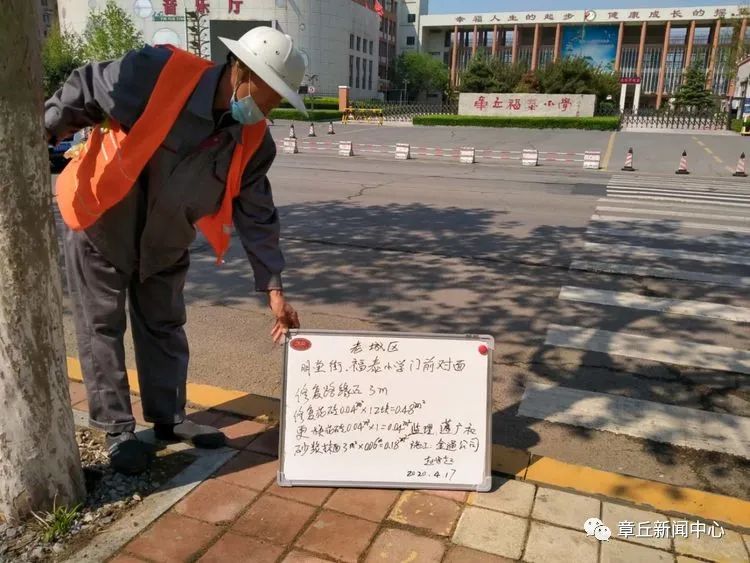 音乐厅
幸福人生的起步 健康成长的
章丘福泰小学
老城区
明堂街、福泰小学门前对面
修复路缘石3m
修复花砖0.04m²×12块=0.48m²
更换花砖0.04m²×1=0.04m²监理:
砂浆抹面3m×0.06=0.18m²施工:金通公司
2020.4.17
章丘新闻中心